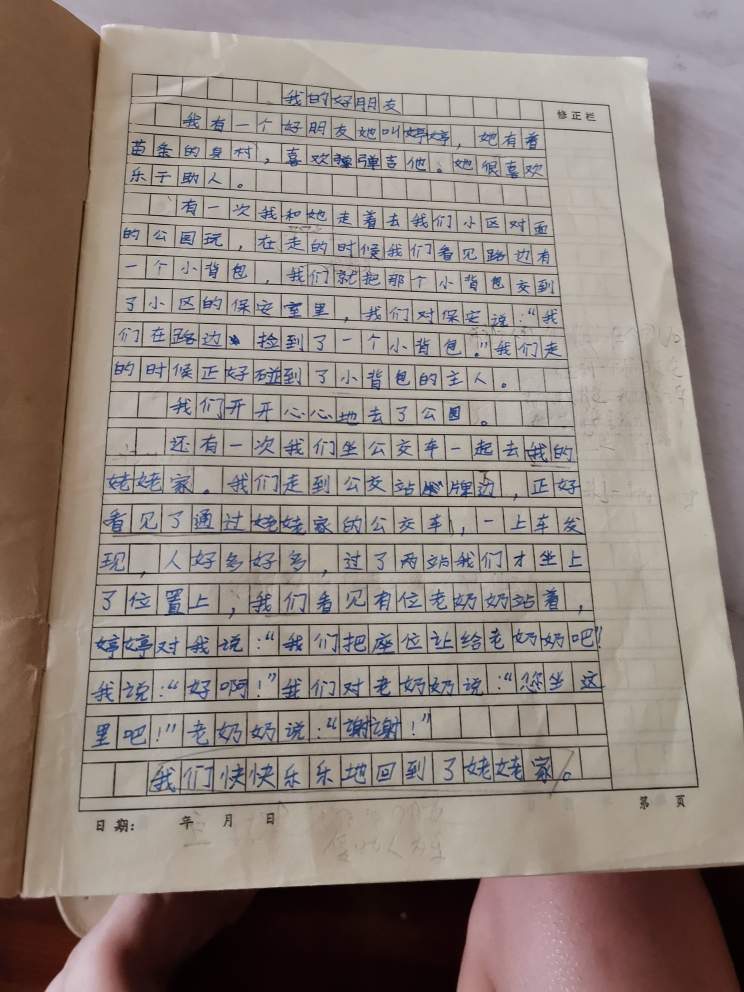 我的好朋友
修正栏
我有一个好朋友她叫婷婷，她有着
苗条的身材，喜欢弹吉他。她很喜欢
乐于助人。
有一次我和她走着去我们小区对面
的公园玩，在走的时候我们看见路边有
一个小背包，我们就把那个小背包交到
了小区的保安室里，我们对保安说：“我
们在路边捡到了一个小背包！”我们走
的时候正好碰到了小背包的主人。
我们开开心心地去了公园。
还有一次我们坐公交车一起去我的
姥姥家。我们走到公交站牌边，正好
看见了通过姥姥家的公交车，一上车发
现，人好多好多，过了两站我们才坐上
了位置上，我们看见有位老奶奶站着，
婷婷对我说：“我们把座位让给老奶奶吧！
我说：“好啊！”我们对老奶奶说：“您坐这
里吧！”老奶奶说：“谢谢！”
我们快快乐乐地回到了姥姥家。
第 页
日期： 年 月 日